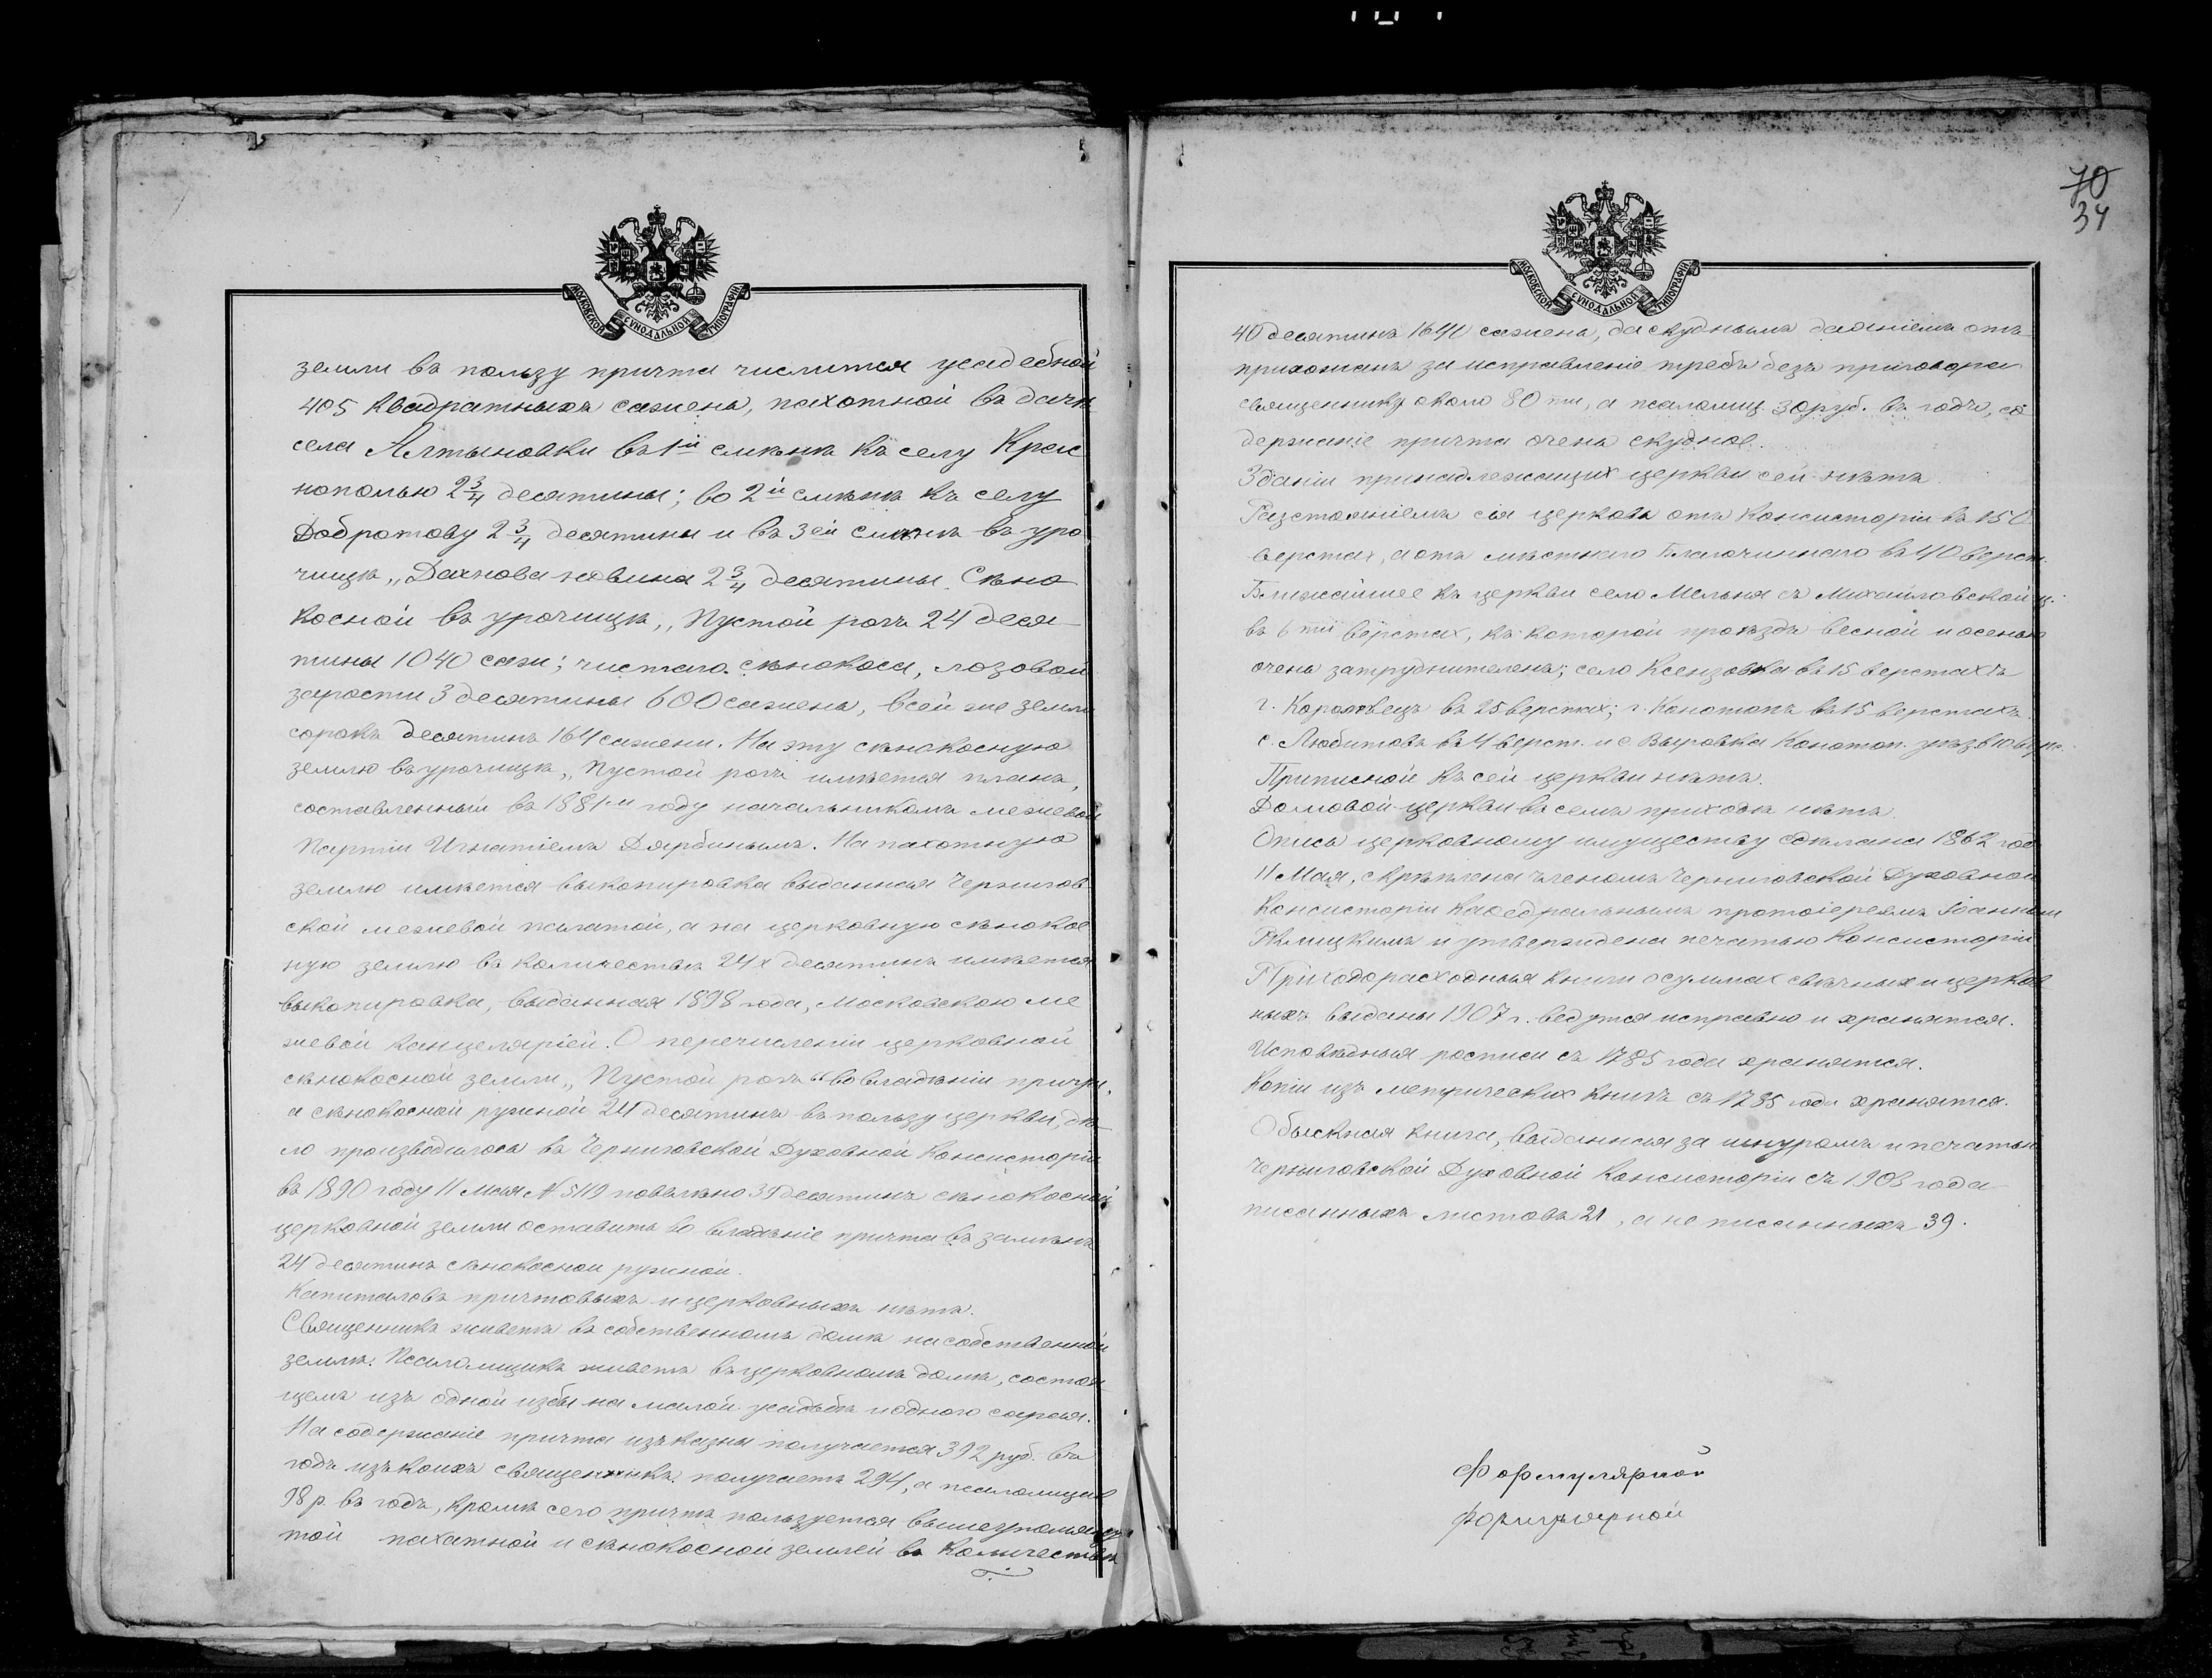 МОСКОВСКОЙ СѴНОДАЛЬНОЙ ТИПОГРАФІИ
земли въ пользу причта числится усадебной
405 квадратныхъ сажень, пахотной въ дачѣ
села Алтыновки въ 1й смѣнѣ къ селу Крас
нополью 2 3/4 десятины; во 2й смѣнѣ къ селу
Добротову 2 3/4 десятины и въ 3ей смѣнѣ въ уро
чищѣ „Дахнова новина 2 3/4 десятины. Сѣно
косной въ урочищѣ „Пустой рогъ 24 деся
тины 1040 саж; чистаго сѣнокоса, лозовой
зарости 3 десятины 600 сажень, всей же земли
сорокъ десятинъ 164 сажени. На эту сѣнокосную
землю въ урочищѣ „Пустой рогъ имѣется планъ,
составленный въ 1881м году начальникомъ межевой
партіи Игнатіемъ Дярбинымъ. На пахотную
землю имѣется выкопировка выданная Чернигов
ской межевой палатой, а на церковную сѣнокос
ную землю въ количествѣ 24х десятинъ имѣется
выкопировка, выданная 1898 года, Московскою ме
жевой канцеляріей. О перечисленіи церковной
сѣнокосной земли „Пустой рогъ“ во владѣніи причта,
а сѣнокосной ружной 24 десятинъ въ пользу церкви, дѣ
ло производилось въ Черниговской Духовной Консисторіи
въ 1890 году 11 Мая № 5119 повелѣно 39 десятинъ сѣнокосной
церковной земли оставить во владѣніе причта въ замѣнъ
24 десятинъ сѣнокосной ружной.
Капиталовъ причтовыхъ и церковныхъ нѣтъ.
Священникъ живетъ въ собственномъ домѣ на собственной
землѣ. Псаломщикъ живетъ въ церковномъ домѣ, состоя
щемъ изъ одной избы на малой усадьбѣ и одного сарая.
На содержаніе причта изъ казны получается 392 руб. въ
годъ изъ коихъ священникъ получаетъ 294, а псаломщик
98 р. въ годъ, кромѣ сего причтъ пользуется вышеупомяну
той пахатной и сѣнокосной землей въ количествѣ
70
34
МОСКОВСКОЙ СѴНОДАЛЬНОЙ ТИПОГРАФІИ
40 десятинъ 1640 сажень, да скуднымъ даяніемъ отъ
прихожанъ за исправленіе требъ безъ приговора
священнику около 80ти, а псаломщ. 30 руб. въ годъ, со
держаніе причта очень скудное.
Зданій принадлежащих церкви сей нѣтъ.
Разстояніемъ сія церковь отъ Консисторіи въ 150
верстах, а отъ мѣстнаго Благочиннаго въ 40 верст.
Ближайшее къ церкви село Мельня съ Михайловской ц.
въ 6ти верстах, къ которой проѣздъ весной и осенью
очень затруднителенъ; село Ксензовка въ 15 верстахъ
г. Королевецъ въ 25 верстах; г. Конотопъ въ 15 верстахъ
с. Любитовъ въ 4 верст. и с. Выровка Конотоп. уѣзд. в 10 верс.
Приписной къ сей церкви нѣтъ.
Домовой церкви въ семъ приходѣ нѣтъ.
Опись церковному имуществу сдѣлана 1862 год
11 Мая, скрѣплена членомъ Черниговской Духовной
Консисторіи Каѳедральнымъ протоіереямъ Іоанномъ
и утверждена печатью Консисторіи
Приходорасходныя книги о суммах свѣчных и церков
ныхъ выданы 1907 г. ведутся исправно и хранятся.
Исповѣдныя росписи съ 1785 года хранятся.
Копіи изъ метрических книгъ съ 1785 года хранятся.
Обыскная книга, выданная за шнуромъ и печатью
Черниговской Духовной Консисторіи съ 1903 года
писанныхъ листовъ 21, а не писанныхъ 39.
Формулярной